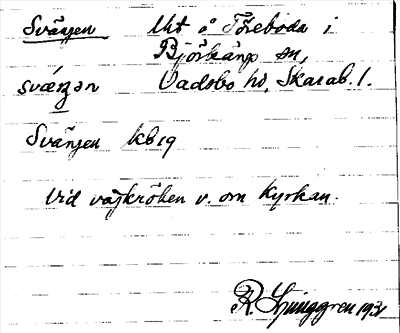 Svängen Utt å Töreboda i
Björkäng sn,
Vadsbo hd, Skarab. l.
Svängen kb 19
Vid vägkröken v. om Kyrkan.
R. Ljunggren 193